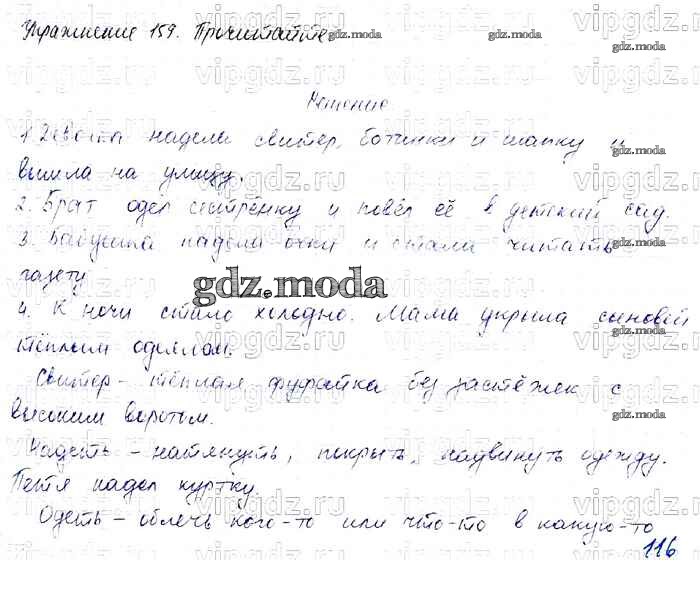 Упражнение 159. Прочитайте
gdz.moda
Решение
1. Девочка надела свитер, ботинки и шапку и
вышла на улицу.
2. Брат одел сестрёнку и повёл её в детский сад.
3. Бабушка надела очки и стала читать
газету
gdz.moda
4. К ночи стало холодно. Мама укрыла сыновей
тёплым одеялом.
Свитер - тёплая фуфайка без застёжек с
высоким воротом.
Надеть - натянуть, покрыть, надвинуть одежду.
Петя надел куртку.
Одеть - облечь кого-то или что-то в какую-то
116